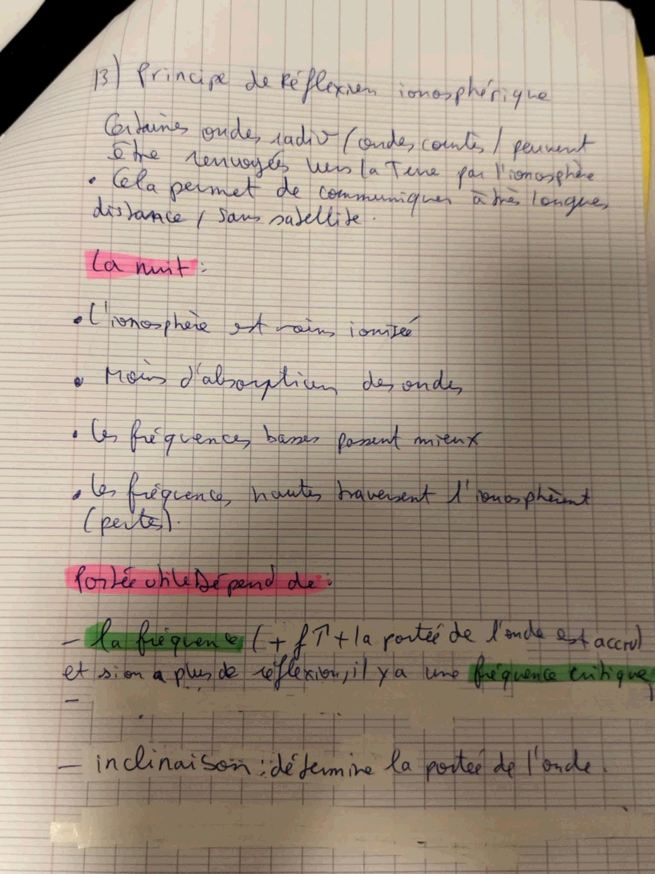 13) Principe de Réflexion ionosphérique
Certaines ondes radio (ondes courtes) peuvent
être renvoyées vers la Terre par l'ionosphère
• Cela permet de communiquer à très longues
distance, sans satellite.
La nuit :
• L'ionosphère est moins ionisée
• Moins d'absorption des ondes
• les fréquences basses passent mieux
• les fréquences hautes traversent l'ionosphèrent
(pertes).
Portée utile Dépend de :
– la fréquence (+ f ↑ + la portée de l'onde est accru)
et si on a plus de réflexion, il y a une fréquence critique
–
– inclinaison : détermine la portée de l'onde.